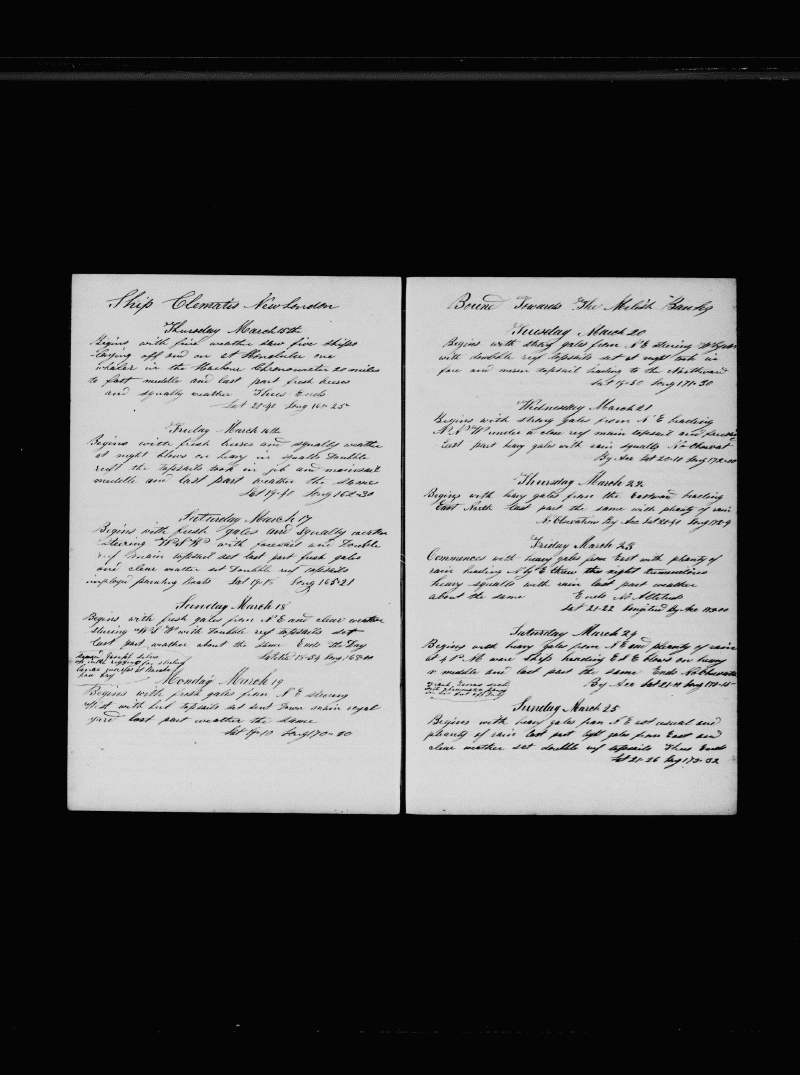 Ship Clematis New London
Thursday March 15th
Begins with fine weather saw five ships
laying off and on at Honolulu one
whaler in the Harbour Chronometer 20 miles
to fast middle and last part fresh breses
and squally weather Thus Ends
Lat 21-40 Long 161-25
Friday March 16th
Begins with fresh breses and squally weather
at night blows on heavy in squalls Double
reeft the topsails took in jib and mainsail
middle and last part weather the same
Lat 19-41 Long 162-30
Saturday March 17
Begins with fresh gales and squally weather
steering W S W with foresail and Double
ref main topsail set last part fresh gales
and clear weather set Double ref topsails
imployd painting boats Lat 19-15 Long 165-21
Sunday March 18
Begins with fresh gales from N E and clear weather
stering W S W with Double ref topsails set
last part weather about the same Ends the Day
Latitu 18-54 Long 168-10
Joseph
Monday March 19
Begins with fresh gales from N E stering
West with topsails set sent Down main royal
yard last part weather the same
Lat 19-10 Long 170-00
Bound Towards The Kanky
Tuesday March 20
Begins with strong gales from N E stering
with double ref topsails set at night took in
fore and mizen topsail heading to the Northward
Lat 19-50 Long 171-30
Wednesday March 21
Begins with strong gales from N E heading
N N W under a close ref main topsail and
Last part heavy gales with rain squally No Observat
By Acc Lat 20-10 Long 172-00
Thursday March 22
Begins with heavy gales from the Eastward heading
East North last part the same with plenty of rain
No Observation By Acc Lat 20-41 Long 172-4
Friday March 23
Commences with heavy gales from East with plenty of
rain heading N by E threw the night tremendious
heavy squalls with rain last part weather
about the same Ends No
Lat 21-22 Longitud By Acc 172-00
Saturday March 24
Begins with heavy gales from N E and plenty of rain
at 4 P M ware Ship heading E S E blows on heavy
middle and last part the same Ends No Observation
By Acc Lat 21-11 Long 172-15
Sunday March 25
Begins with heavy gales from N E as usual and
plenty of rain last part light gales from East and
clear weather set double ref topsails Thus Ends
Lat 21-26 Long 172-32